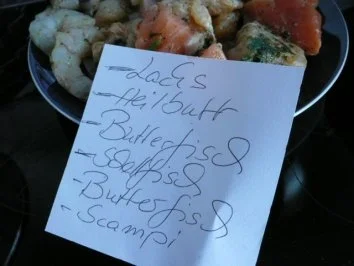 - Lachs
- Heilbutt
- Butterfisch
- Butterfisch
- Scampi